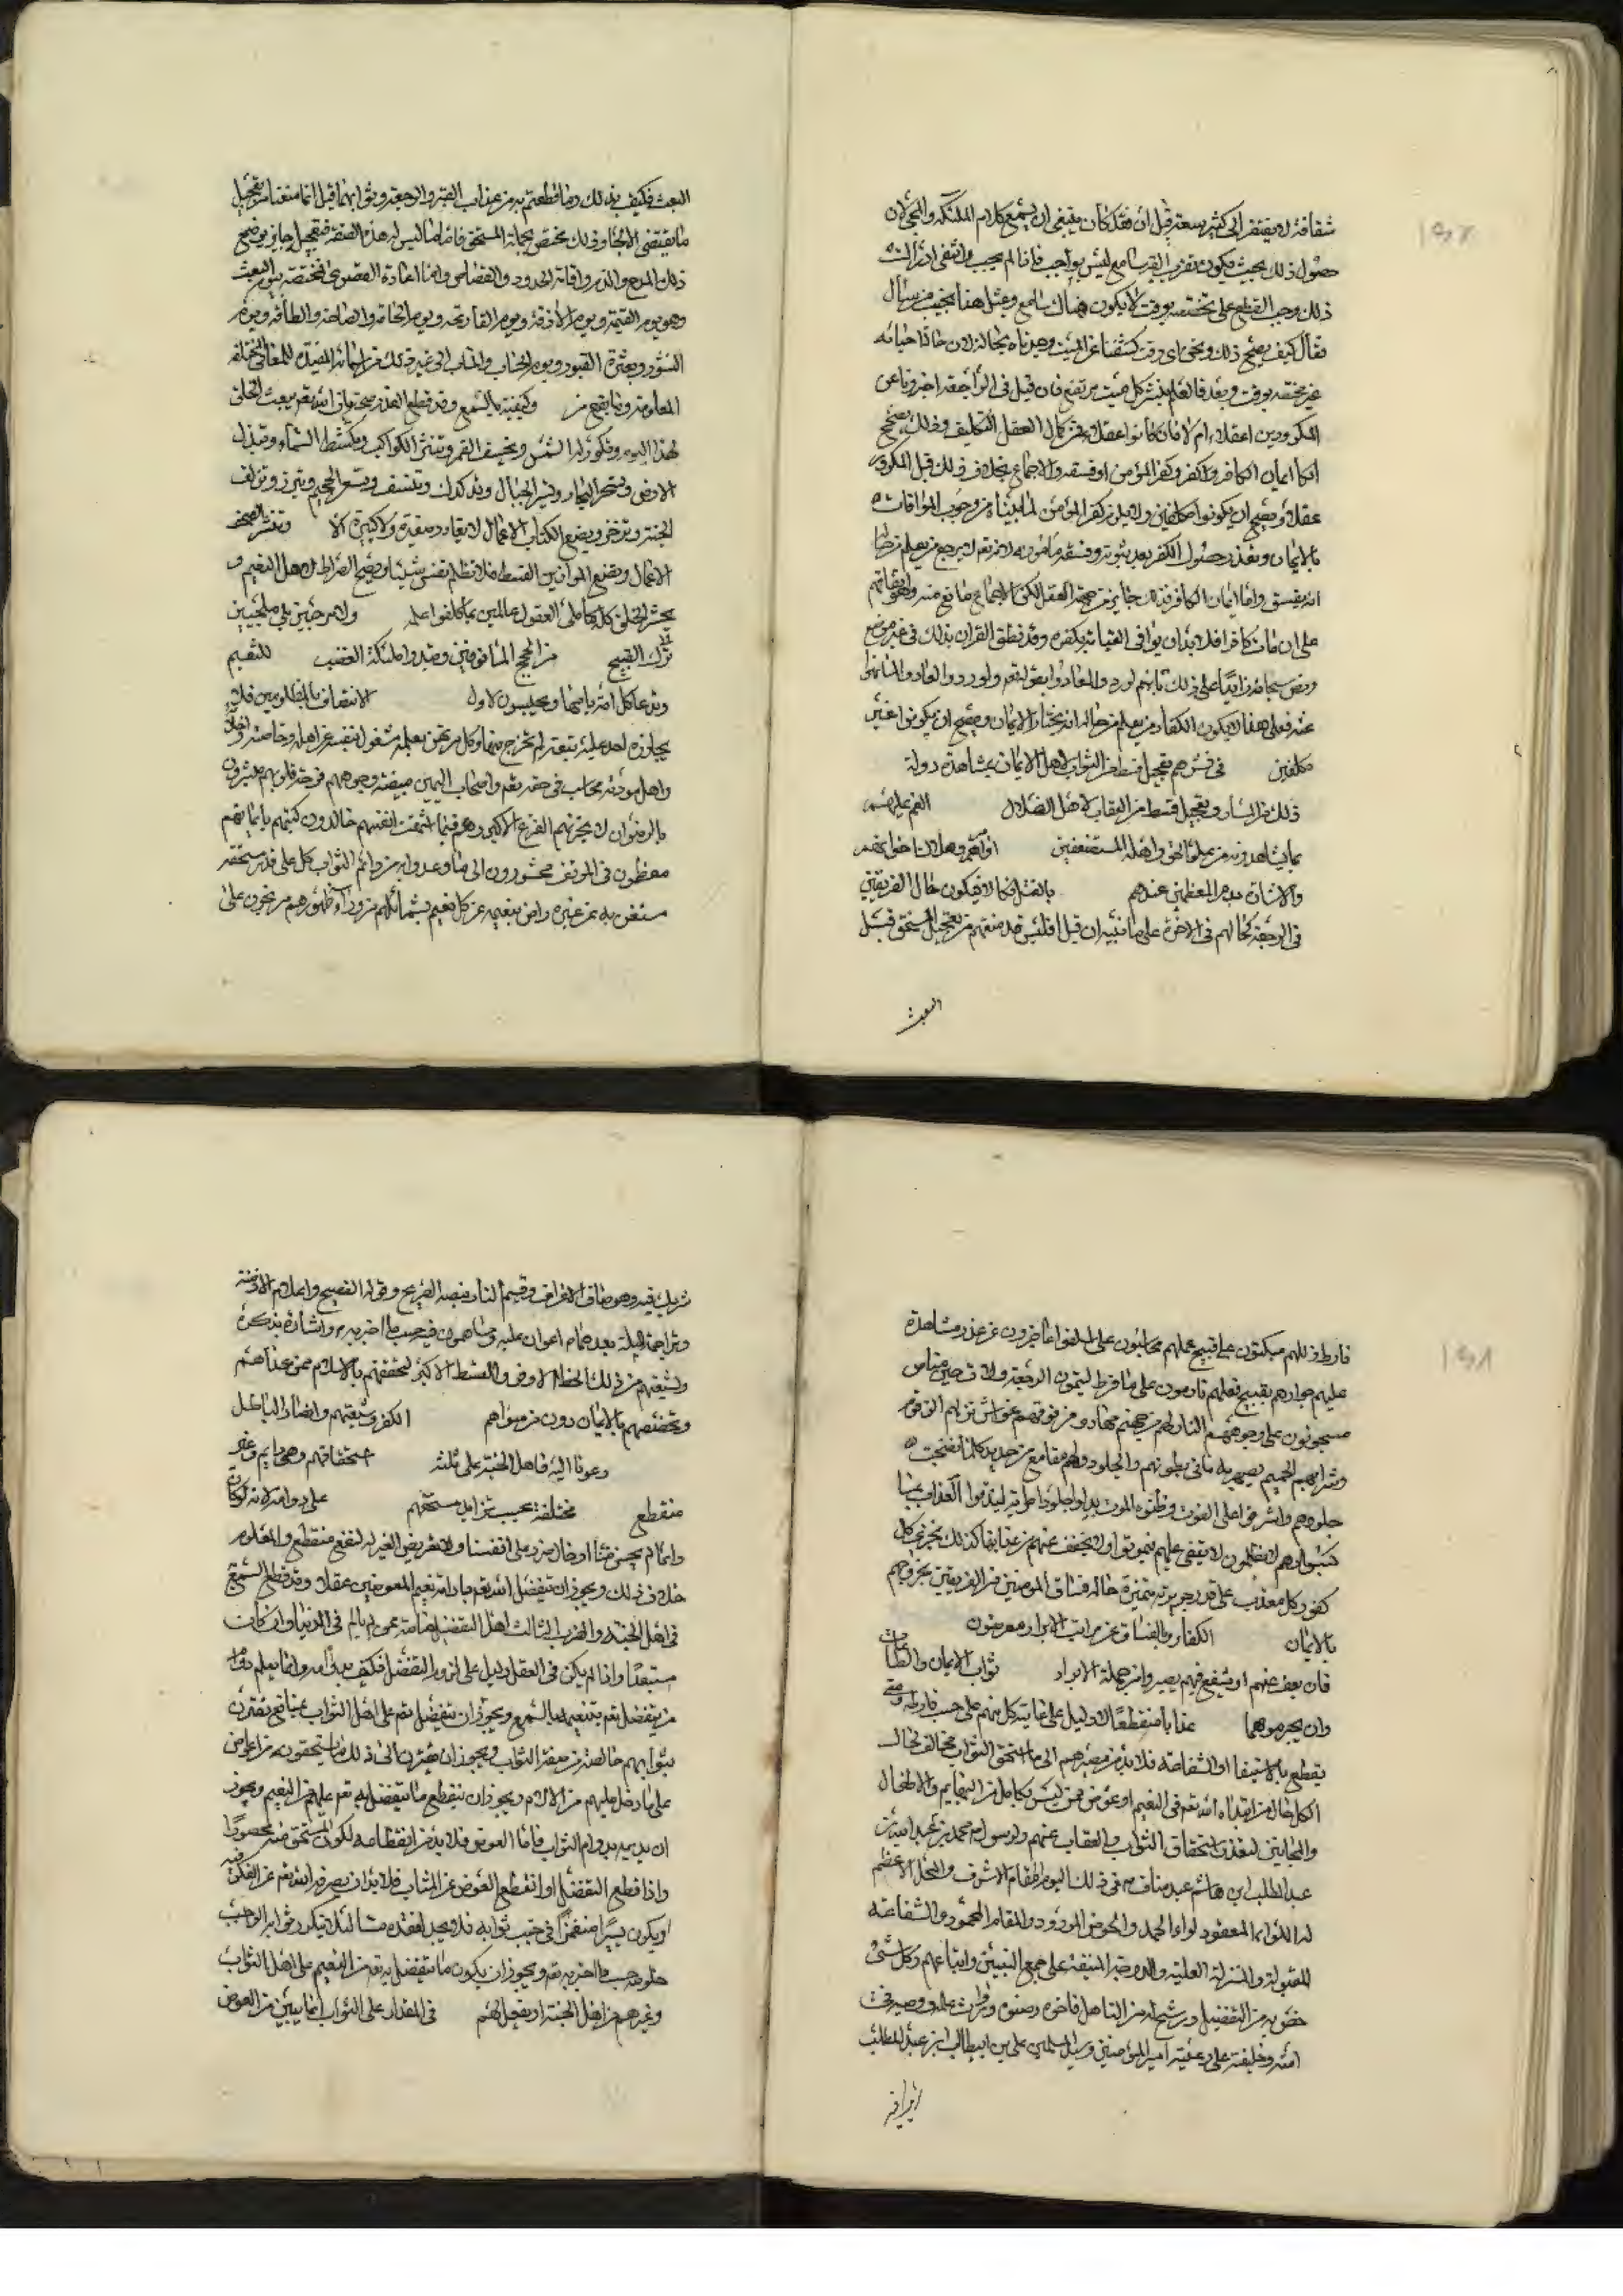 شفافة لا يفتقر الى كثير سعة قيل ان فقد كان ينبغي ان يسمع كلام الملئكة والمجئ لان
حصول ذلك بحيث يكون بقرب السامع ليس بواجب فاذا لم يجب وانتفى ادراك
ذلك وجب القطع على تخصصه بوقت لا يكون هناك سامع وبمثل هذا نجيب من سال
فقال كيف يصح ذلك ونحن اى وقت كشفنا عن الميت وجدناه بحاله لان حال حياته
غير مختصه بوقت وبعد فالعلم بنشر كل ميت مرتفع فان قيل فى الراجعة اخبرونا عن
المكرورين اعقلاء ام لا فان كانوا عقلاء فمن كمال العقل التكليف وذلك يصحح
ايمان الكافر وكفر المؤمن او فسقه والاجماع بخلاف ذلك قيل المكرورون
عقلاء ويصح ان يكونوا مكلفين ولا يلزم كفر المؤمن لما بيناه من وجوب الموافات
بالايمان وتعذر حصول الكفر بعد ثبوته وفسقه مأمون لانه تعم لا يرجع من يعلم من حاله
انه يفسق واما ايمان الكافر فذلك جايز من جهة العقل لكن الاجماع مانع منه
على ان من مات كافرا فلا بد ان يوافى القيامة بكفره وقد نطق القران بذلك فى غير موضع
ونص سبحانه زايدا على ذلك بانهم لو ردوا لعادوا بقوله تعم ولو ردوا لعادوا لما نهوا
عنه فعلى هذا لا يكون الكفار ممن يعلم من حاله انه يختار الايمان ويصح ان يكونوا غير
مكلفين فى نشرهم تعجيل قسط من الثواب لاهل الايمان بمشاهدة دولة
ذلك من السار وتعجيل قسط من العقاب لاهل الضلال الغم عليهم
بما يشاهدونه من علو الحق واهله المستضعفين
والاشارة بدم المعظمين عندهم بالقتل فكالاول يكون حال الفريقين
فى الرجعة كحالهم فى الاخرة على ما نبينه ان قيل افليس قد منعتم من تعجيل المستحق قبل
البعث
البعث فكيف بذلك وما قطعتم به من عذاب القبر والرجعة وثوابهما قيل انما منعنا من تعجيل
ما يقتضى الالجاء وذلك مختص بجملة المستحق فاما ما ليس له هذه الصفة فتعجيله جايز يوضح
ذلك المدح والذم واقامة الحدود والقصاص واما اعادة القصوى فمختصة بيوم البعث
وهو يوم القيمة ويوم الازفة ويوم القارعة ويوم الحاقة والصاخة والطامة ويوم
النشور وبعثرة القبور ويوم الحساب والمآب الى غير ذلك من اسمائه المفيدة للمعانى المختلفه
المعلومة وما يقع من وكيفيته بالسمع وقد قطع العذر صحة بان الله تعم يبعث الخلق
لهذا اليوم وتكور له الشمس ويخسف القمر وتنتثر الكواكب وتكشط السماء وتبدل
الارض وتسجر البحار وتسير الجبال وتدكدك وتنسف وتسعر الجحيم وتبرز وتزلف
الجنة وتزخرف ويضع الكتاب الاعمال لا يغادر صغيرة ولا كبيرة الا وتنشر الصحف
الاعمال ويضع الموازين القسط فلا تظلم نفس شيئا ويضع الصراط لاهل النعيم و
يحشر الخلق كلهم كاملى العقول عالمين بما كلفوا علمه ولا مرجئين بل ملجئين
ترك القبيح من الحج المانوفين وتبدوا ملئكة الغضب للنقيم
وتدعا كل امة بامامها ويجلبسون لاول الانتصاف بالمظلومين فلا
يجاوزه احد عليه تبعة لم تخرج منها وكل مرتهن بعمله مشغول بنفسه عن اهله وخاصته واخلائه
واهل مودته محاسب فى حقه تعم واصحاب اليمين مبيضة وجوههم فرحة قلوبهم مبشرون
بالرضوان لا يحزنهم الفزع الاكبر وهم فيما اشتهت انفسهم خالدون كتبهم بايمانهم
معظمون فى الموقف محشورون الى ما وعدوا به من دائم الثواب كل على قدر مستحقه
مستغن به عن غيره راض بنعيمه عن كل نعيم بشمائلهم من وراء ظهورهم مرتجون على
فارط زللهم مبكتون على قبيح عملهم محاسبون على ما اسلفوا عاجزون عن عذر مشاهدة
عليهم جوارحهم بقبيح فعلهم نادمون على ما فرط ليتمون الرجعة ولات حين مناص
مسحوبون على وجوههم النار لهم من جهنم مهاد ومن فوقهم غواش نزلهم الزقوم
وشرابهم الحميم يصهر به ما فى بطونهم والجلود ولهم مقامع من حديد كلما نضجت
جلودهم واشرفوا على الفوت وظنوه الموت بدلوا جلودا طرية ليذوقوا العذاب بما
كسبوا وهم لا يظلمون لا يقضى عليهم فيموتوا ولا يخفف عنهم من عذابها كذلك نجزى كل
كفور كل معذب على قدر جريرته متميزة حاله فساق المؤمنين من الفريقين بخروجهم
بالايمان الكفار وبالفساق عن مراتب الابرار معرضون
فان يعف عنهم او يشفع فيهم يصيروا من جملة الابرار ثواب الايمان والطاعات
وان يجرموهما عذابا منقطعا لا دليل على غايته كل منهم على حسب فارطه ومتى
يقطع بالاستيفا او الشفاعة فلا بد من مصيرهم الى ما استحق الثواب مخالف لحال
الكل حال من ابتداه الله تعم فى النعيم او عوض ممن ليس بكامل من البهايم والاطفال
والمجانين لتعذر استحقاق الثواب والعقاب عنهم ولرسوله محمد بن عبد الله بن
عبد المطلب بن هاشم عبد مناف فى ذلك اليوم المقام الاشرف والمحل الاعظم
له اللواء المعقود لواء الحمد والحوض المورود والمقام المحمود والشفاعة
المقبولة والمنزلة العلية والدرجة المنيفة على جميع النبيين واتباعهم وكل شئ
خص به من التفضيل ورشح له من التاهل فاخوه وصنوه ووارث علمه ووصيه فى
امته وخليفته على رعيته امير المؤمنين وسيد المسلمين على بن ابيطالب بن عبد المطلب
شريك فيه وهو صاحب الاعراف وقسيم النار بنصه الصريح وقوله الفصيح واعلام الازمنة
وتراجمة الملة بعدهما اعوان عليه ومساهمون فيه حسب ما اخبر به واشار بذكره
ولشيعتهم من ذلك الحظ الاوفر والقسط الاكبر لتحققهم بالاسلام ممن عداهم
وتخصصهم بالايمان دون من سواهم الكفر وشيعتهم وانصار الباطل
ودعوا اليه فاهل الجنة على ثلثه استحقاقهم وهى دايم وغير
منقطع مختلفة بحسب تزايد مستحقهم على دوامه لانه لو كان
وانما لم يحسن منا ادخال ضرر على انفسنا ولا تعريض الغير له لنفع منقطع والمعلوم
خلاف ذلك ويجوز ان يتفضل الله تعم بادامة نعيم المعوضين عقلا وقد قطع السمع
فى اهل الجنة والضرب الثالث اهل التفضل خاصة ممن لم يالم فى الدنيا وان كان
مستبعدا واذا لم يكن فى العقل دليل على لزوم التفضل فكيف بدوامه وانما يعلم دوام
من يتفضل تعم بتنعيمه بالسمع ويجوز ان يتفضل تعم على اهل الثواب بمنافع يقترن
بثوابهم خالصة من صفة الثواب ويجوز ان يقترن الى ذلك ما يستحقونه من اعواض
على ما دخل عليهم من الالام ويجوز ان ينقطع ما يتفضل به تعم عليهم من النعيم ويجوز
ان يديمه بدوام الثواب فاما العوض فلا بد من انقطاعه لكون المستحق منه محصورا
واذا قطع التفضل او انقطع العوض عن المثاب فلا بد ان يصرفه الله تعم عن الفكر فيه
او يكون يسيرا منغمرا فى جنب ثوابه فلا يجد لفقده مسا لئلا يتكدر ثوابه الواجب
خلوصه حسب ما اخبر به تعم ويجوز ان يكون ما يتفضل به تعم من النعيم على اهل الثواب
وغيرهم من اهل الجنة او يفعل لهم فى المقدار على الثواب انما يبين من العوض